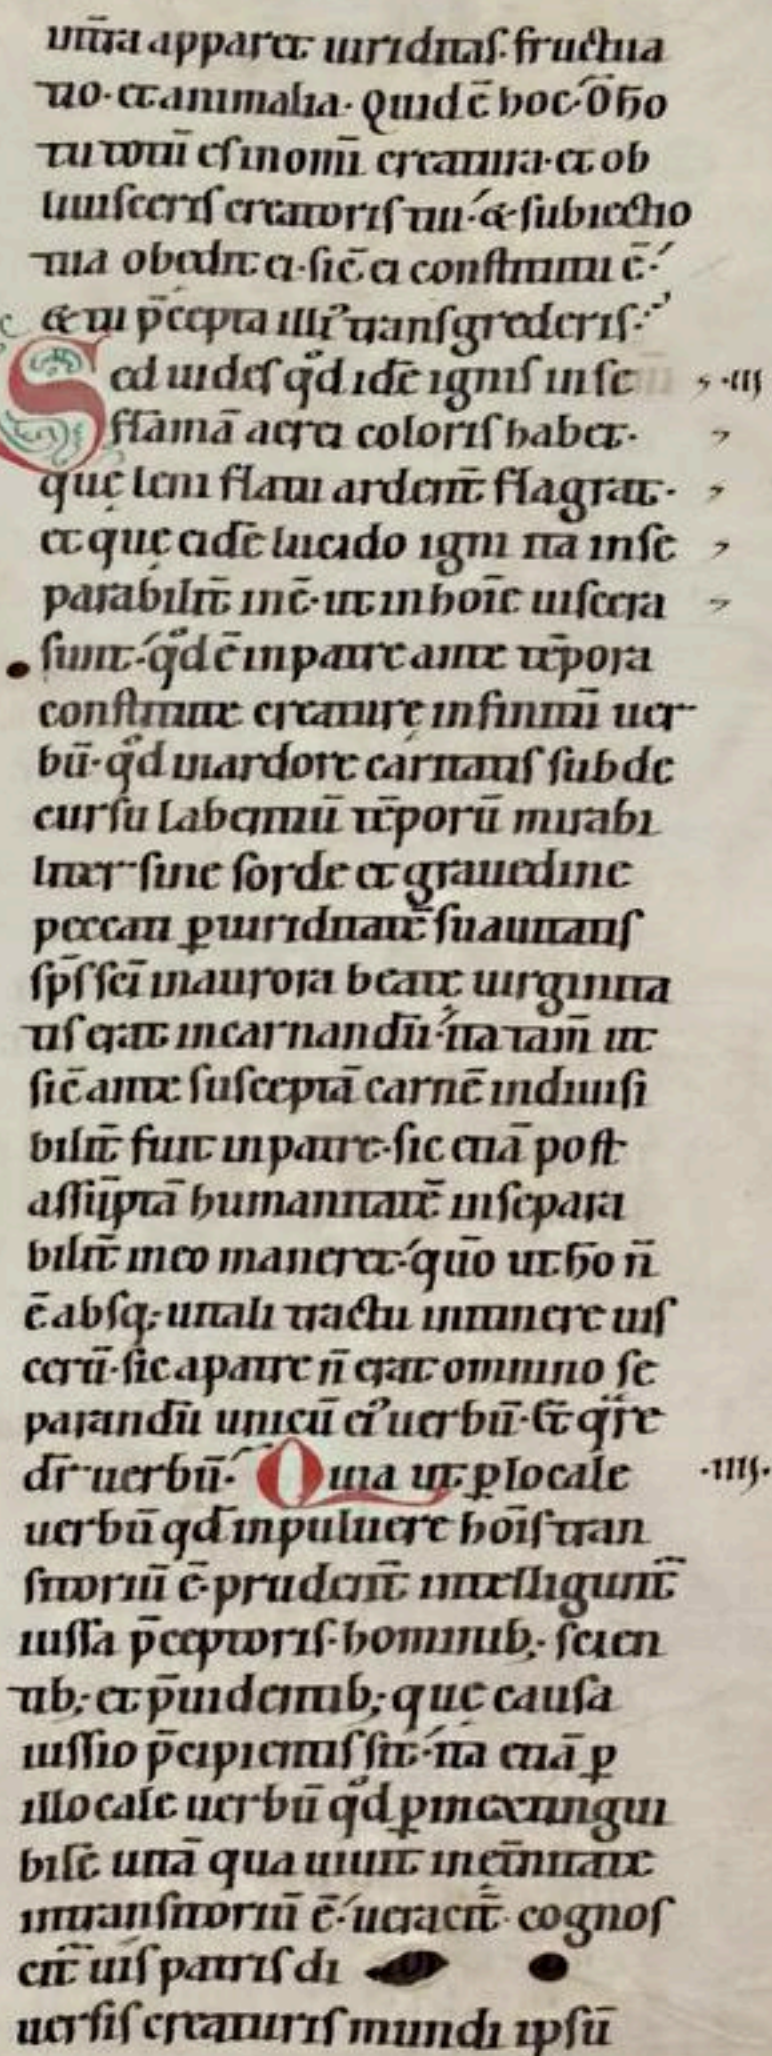 um̄ra apparet uiriditas. fructua
tio. et animalia. Quid ē hoc. O hō
tu totū es in om̄i creatura. et ob
liuisceris creatoris tui. & subiectio
tua obedit ei. sic̄ ei constitutū ē.
& tu p̄cepta illiꝰ transgrederis.
Sed uides qd idē ignis in se .iii
flāmā aerei coloris habet.
quę leni flatu ardent̄ flagrat.
et quę eidē lucido igni ita inse
parabilit̄ inē. ut in hoīe uiscera
sunt. qd ē in patre ante tēpora
constitutę creaturę infinitū uer
bū. qd in ardore caritatis sub de
cursu labentiū tēporū mirabi
liter sine sorde et grauedine
peccati ꝑ uiriditatē suauitatis
sp̄s sc̄i in aurora beatę uirginita
tis erat incarnandū. ita tam̄ ut
sic̄ ante susceptā carnē indiuisi
bilit̄ fuit in patre. sic etiā post
assūptā humanitatē insepara
bilit̄ in eo maneret. quō ut hō n̄
ē absq; uitali tractu in itinere uis
cerū. sic a patre n̄ erat omnino se
parandū unicū eiꝰ uerbū. Et qre
dr̄ uerbū. Quia ut ꝑ locale .iiii.
uerbū qd in puluere hoīs tran
sitoriū ē. prudent̄ intelligunt̄
iussa p̄ceptoris. hominib; scien
tib; et p̄uidentib; quę causa
iussio p̄cipientis sit. ita etiā ꝑ
illocale uerbū qd ꝑ inextingui
bilē uitā qua uiuit in et̄nitate
intransitoriū ē. ueracit̄ cognos
cit̄ uis patris di
uersis creaturis mundi ipsū